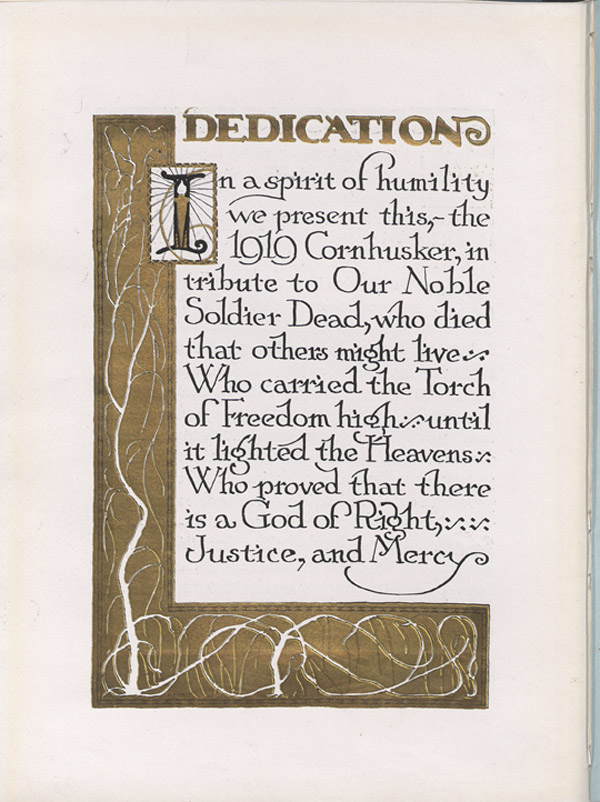 DEDICATION
In a spirit of humility
we present this,~the
1919 Cornhusker, in
tribute to Our Noble
Soldier Dead, who died
that others might live
Who carried the Torch
of Freedom high until
it lighted the Heavens
Who proved that there
is a God of Right,
Justice, and Mercy